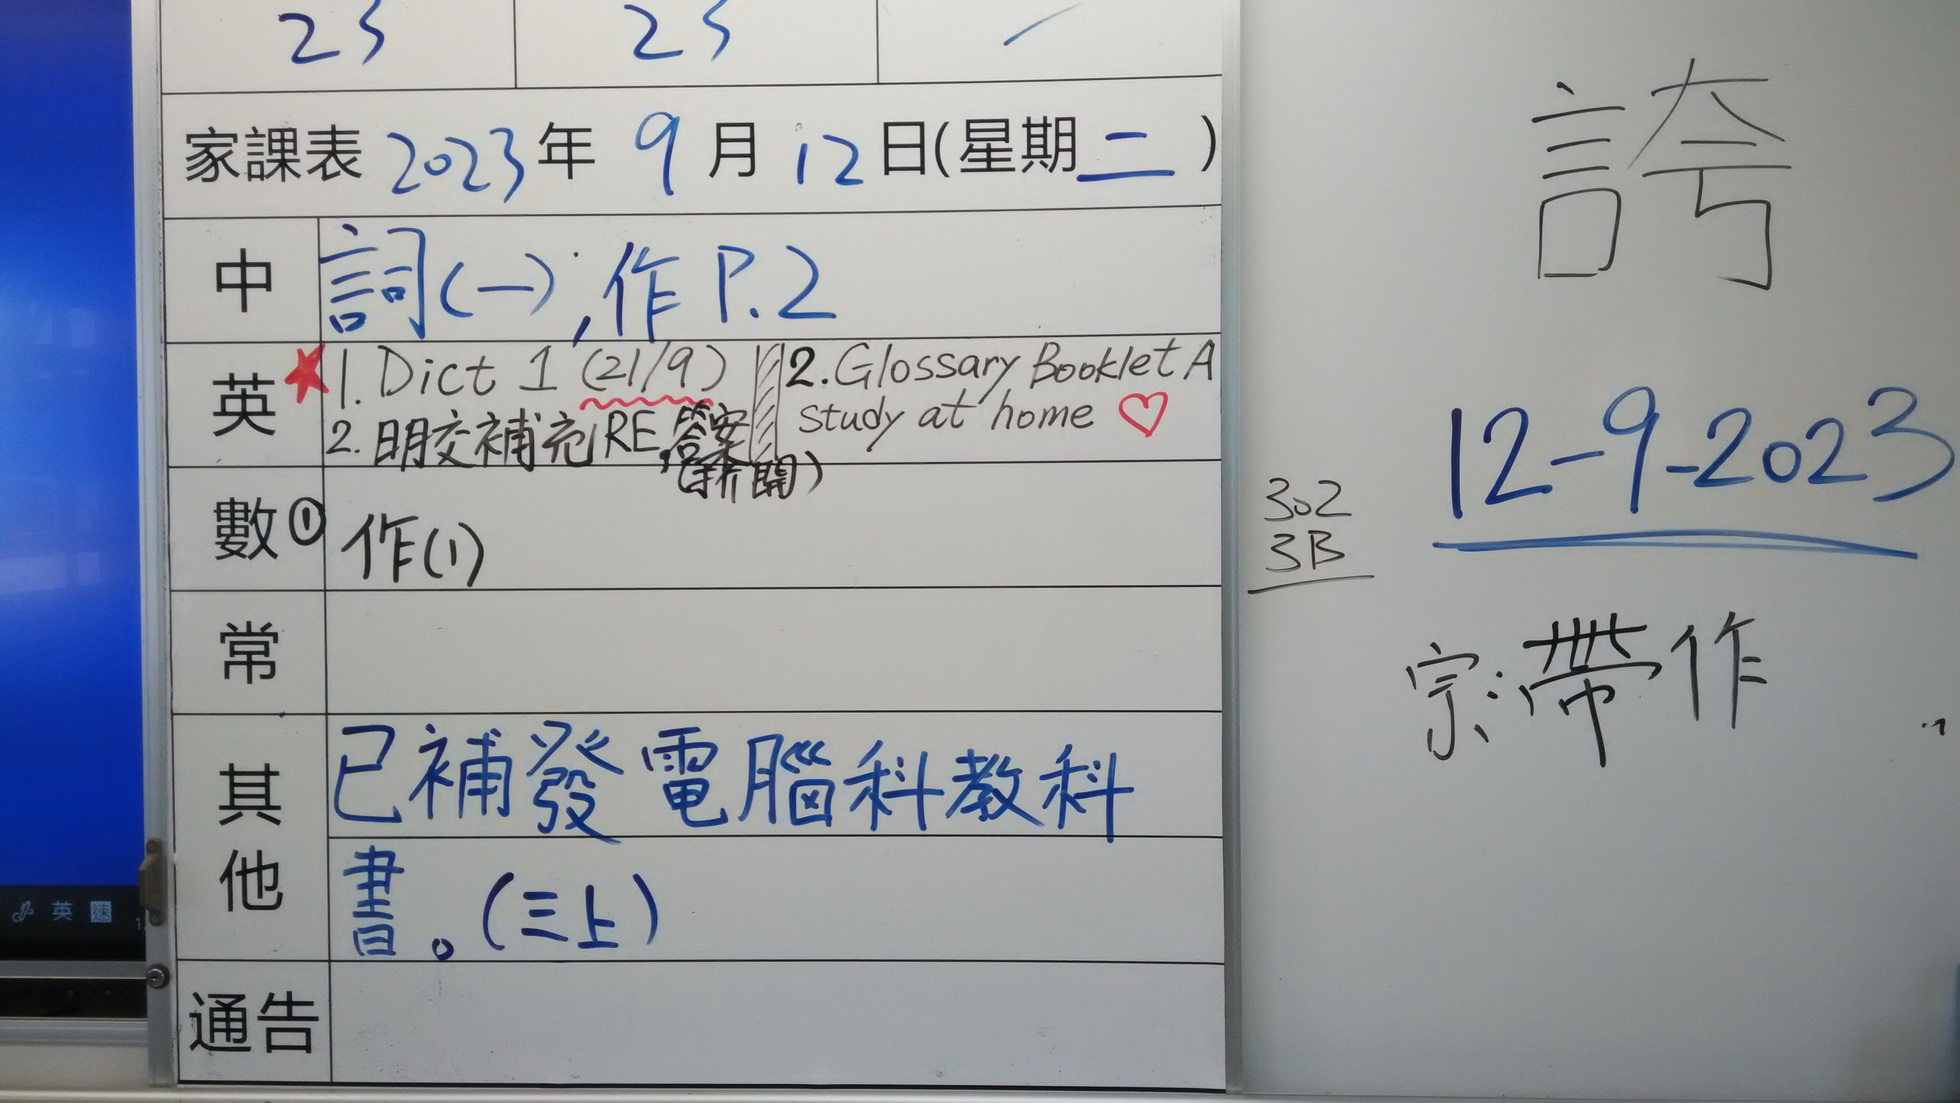 23 23 /
家課表 2023年 9月 12日(星期二)
中 詞(一),作 P.2
英 ★ 1. Dict 1 (21/9) 2. Glossary Booklet A
study at home ♡
2. 明交補充RE,答案
(拆開)
數 ① 作(1)
常
其他 已補發電腦科教科
書。(三上)
通告
誇
12-9-2023
302
3B
宗:帶作
英 速